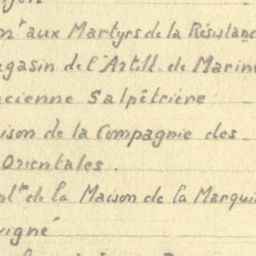 nt aux Martyrs de la Résistanc
agasin de l'Artill. de Marin
ncienne Salpêtrière
ison de la Compagnie des
Orientales.
de la Maison de la Marqui
vigné